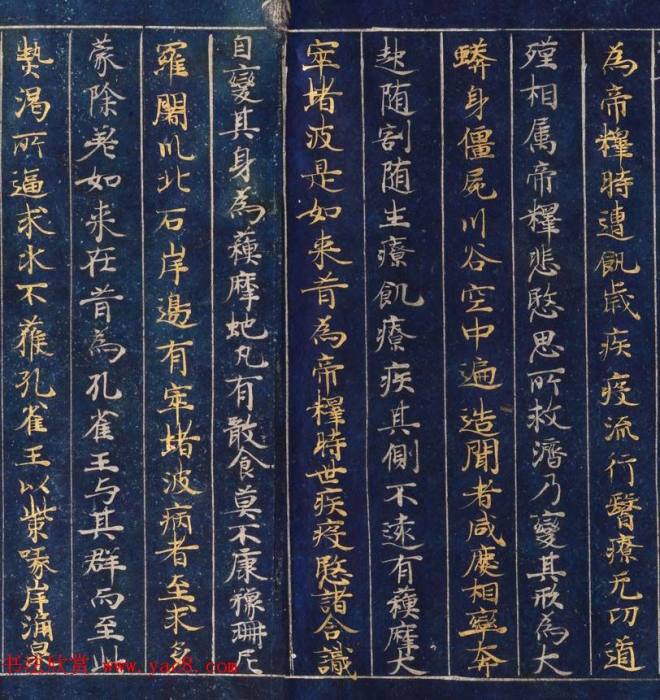 為帝釋時遭飢歲疾疫流行醫療无功道
殣相属帝釋悲愍思所救濟乃變其形為大
蟒身僵屍川谷空中遍造聞者咸應相率奔
赴随割随生療飢療疾其側不遠有蘓摩大
窣堵波是如来昔為帝釋時世疾疫愍諸含識
自變其身為蘓摩蛇凡有散食莫不康豫珊尼
羅闍川北石岸邊有窣堵波病者至求多
蒙除差如来在昔為孔雀王与其群而至此
熱渴所逼求水不獲孔雀王以觜啄岸涌
书法欣赏 www.yac8.com